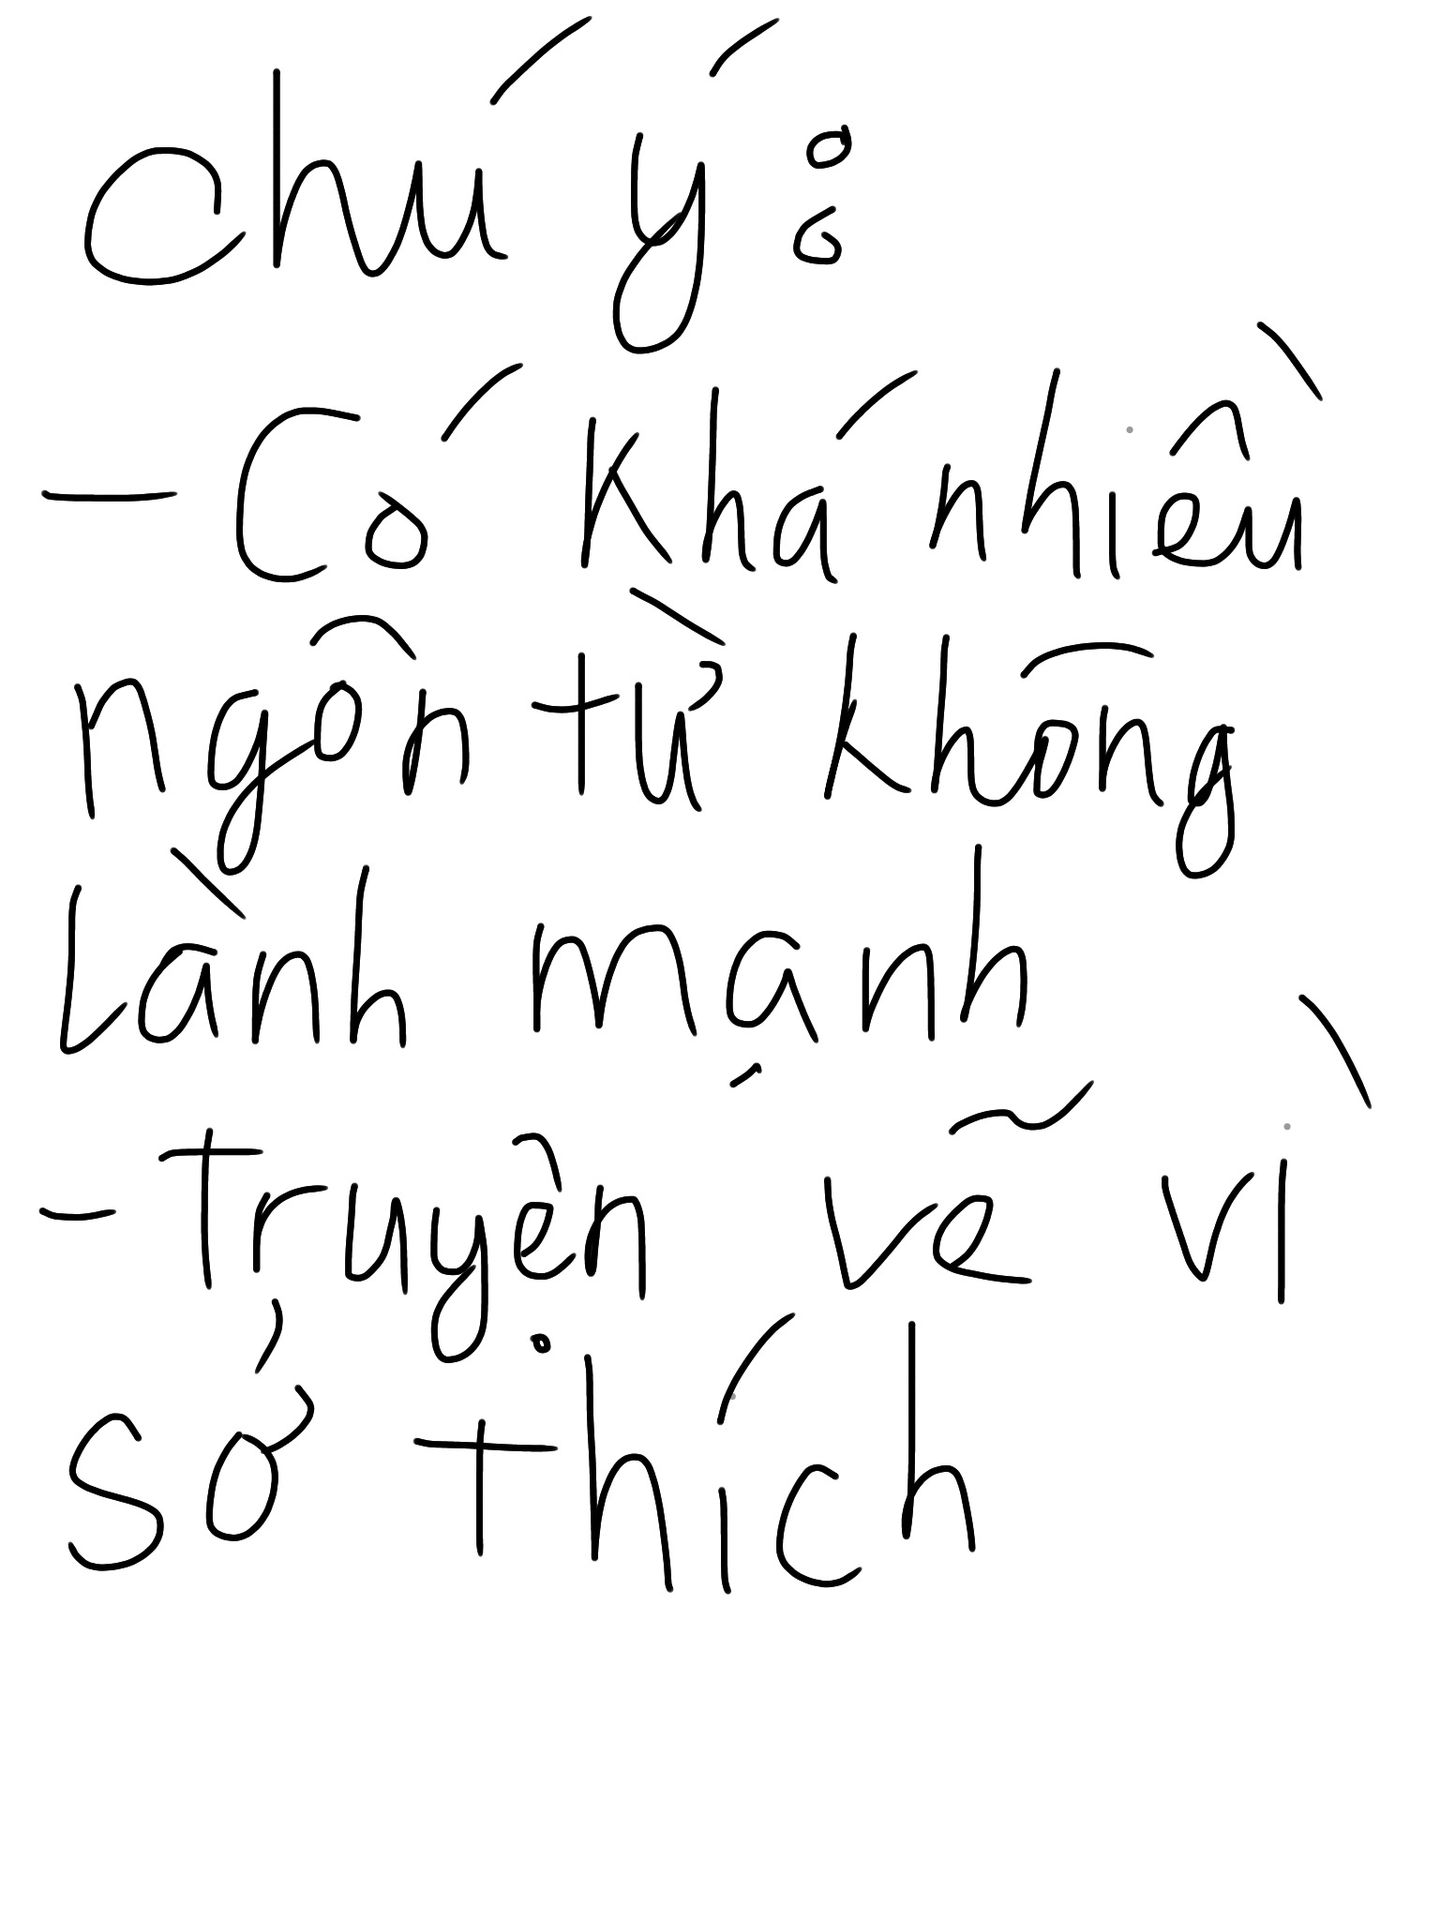 Chú ý:
- Có khá nhiều
ngôn từ không
lành mạnh
- Truyện vẽ vì
sở thích